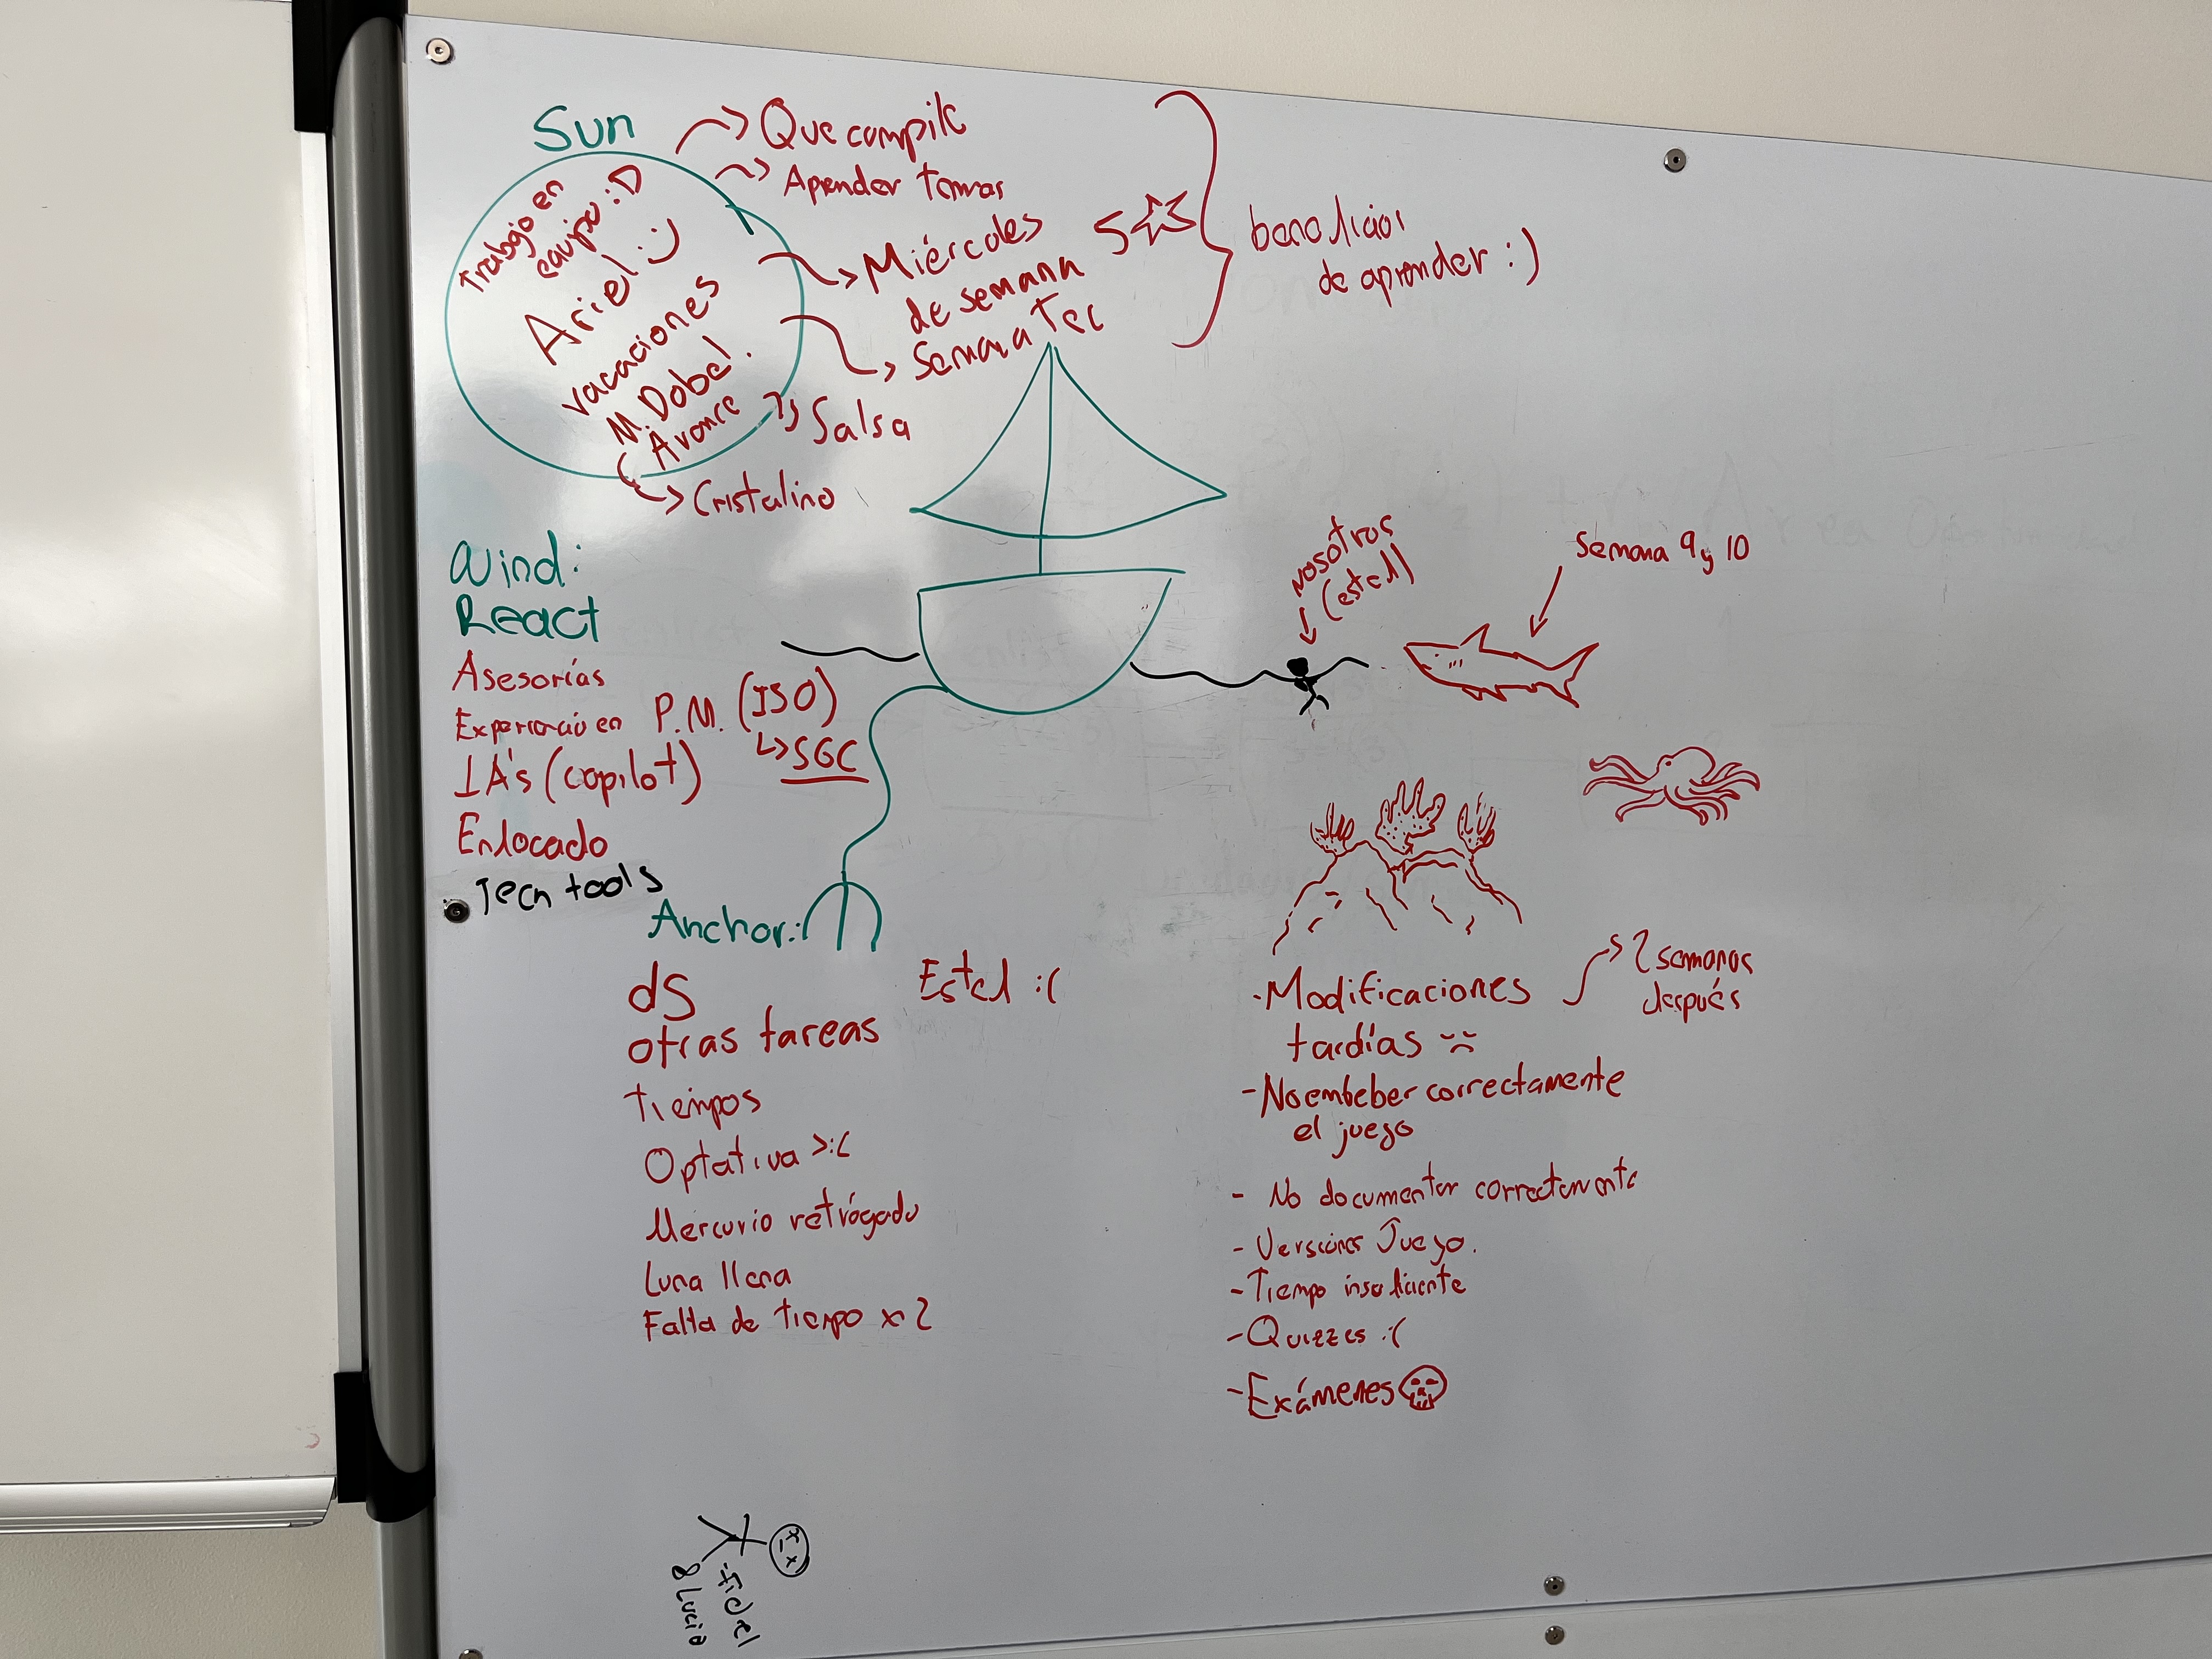 Sun
Trabajo en
equipo :D
Ariel :)
vacaciones
M. Dobel.
Avance
Que compile
Aprender temas
Miércoles
de semana
5☆
Semana Tec
Salsa
Cristalino
beneficios
de aprender :)
Wind:
React
Asesorías
Experiencia en P.M. (ISO)
↳SGC
IA's (copilot)
Enfocado
Tecn tools
nosotros
(estel)
Semana 9 y 10
Anchor:
dS
Estel :(
otras tareas
tiempos
Optativa >:(
Mercurio retrógado
Luna llena
Falta de tiempo x 2
-Modificaciones
tardías
2 semanas
después
-No embeber correctamente
el juego
- No documentar correctamente
- Versiones Juego.
-Tiempo insuficiente
-Quizzes :(
-Exámenes
-Fidel
& Lucia